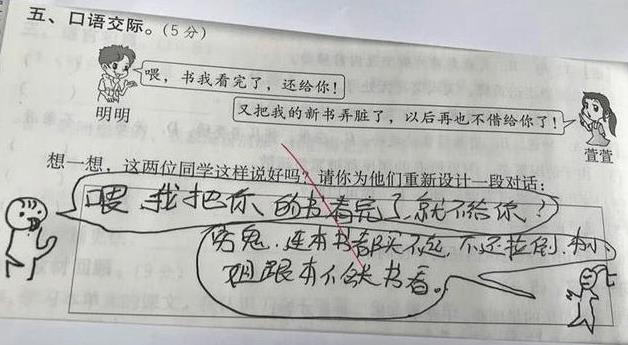 五、口语交际。(5分)
喂，书我看完了，还给你！
明明
又把我的新书弄脏了，以后再也不借给你了！
萱萱
想一想，这两位同学这样说好吗？请你为他们重新设计一段对话：
喂，我把你的书看完了就不给你！
穷鬼，连本书都买不起，不还拉倒，本小
姐跟本不缺书看。